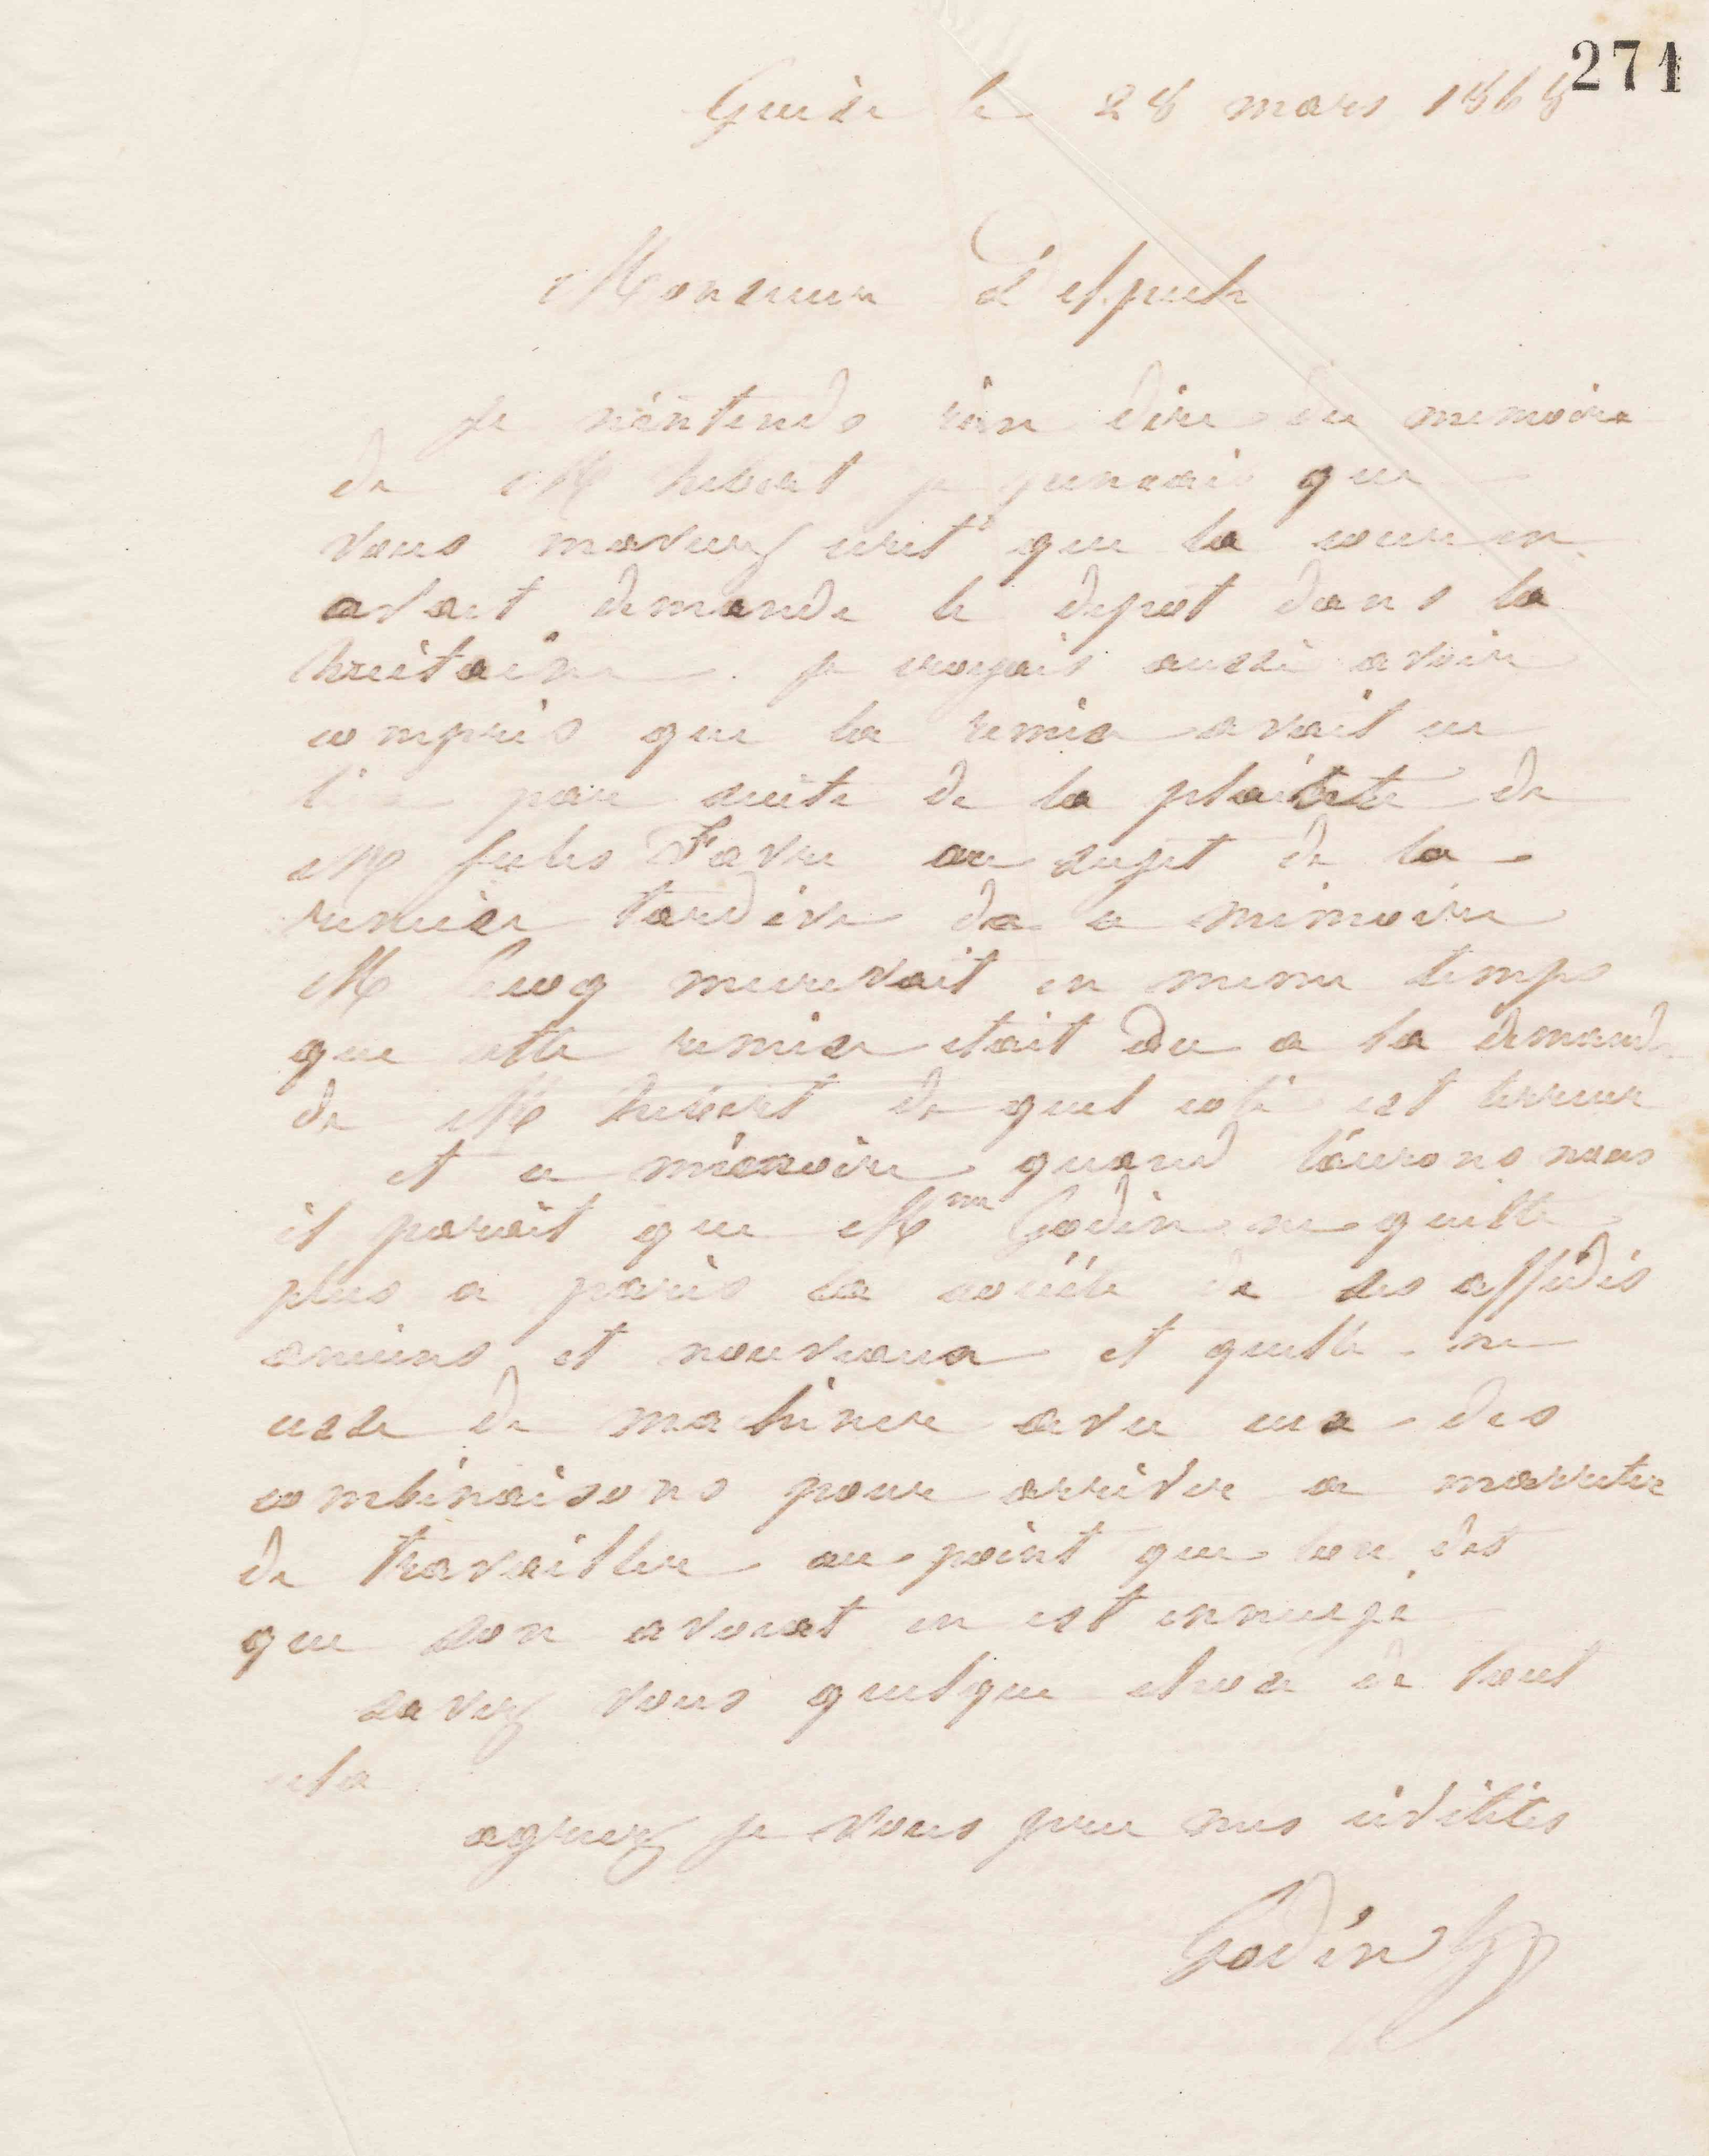 271
Guise le 28 mars 1868
Monsieur Delpech
je n'entends rien dire du memoire
de M hebert je pensais que
vous maviez ecrit que la cour en
avait demande le depot dans la
huitaine. je croyais aussi avoir
compris que la remise avait eu
lieu par suite de la plainte de
M Jules Favre au sujet de la
remise tardive de ce memoire
M Lecoq mecrivait en meme temps
que cette remise etait due a la demande
de M hebert de quel coté est lerreur
et ce mémoire quand l'aurons nous
il parait que Mme Godin ne quitte
plus a paris la société de ses affidés
anciens et nouveaux et quelle ne
cesse de machiner avec eux des
combinaisons pour arriver a marreter
de travailler au point que lon dit
que son avocat en est ennuyé
savez vous quelque chose de tout
cela
agreez je vous prie mes civilités
Godin